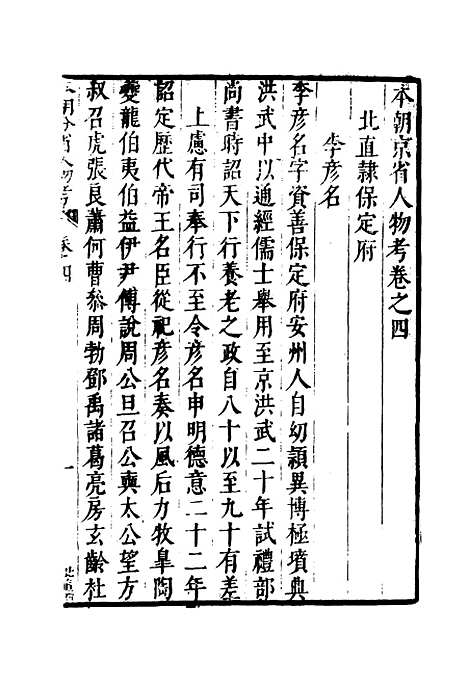 本朝京省人物考卷之四
北直隷保定府
李彦名
李彦名字資善保定府安州人自幼頴異博極墳典
洪武中以通經儒士舉用至京洪武二十年試禮部
尚書時詔天下行養老之政自八十以至九十有差
上慮有司奉行不至令彦名申明德意二十二年
詔定歷代帝王名臣從祀彦名奏以風后力牧臯陶
夔龍伯夷伯益伊尹傅說周公旦召公奭太公望方
叔召虎張良蕭何曹參周勃鄧禹諸葛亮房玄齡杜
本朝分省人物考 卷四 一